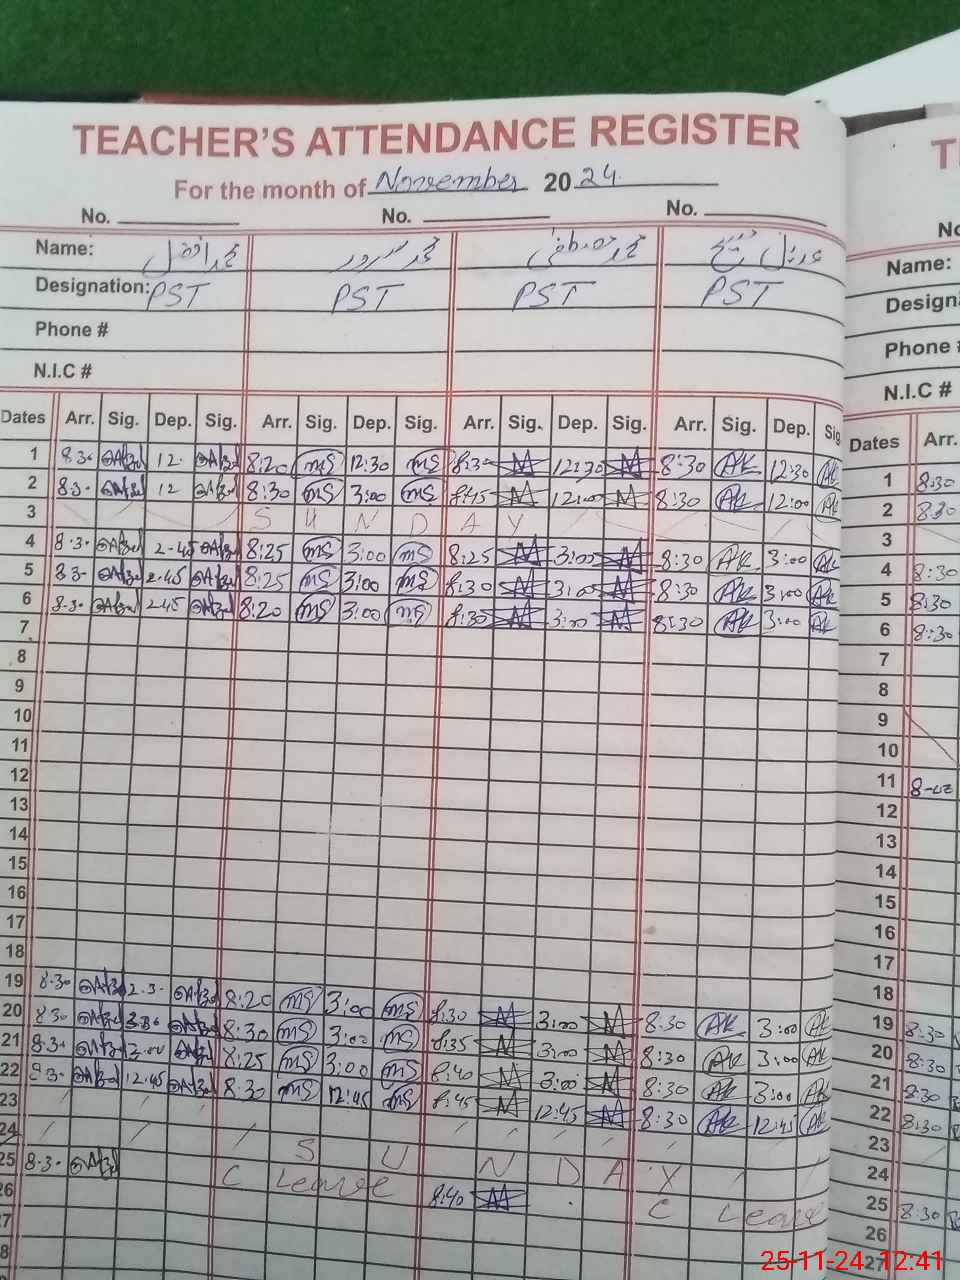 TEACHER'S ATTENDANCE REGISTER
For the month of November 2024
No. No. No.
Name: محمد افضل محمد سرور محمد مصطفیٰ
Designation: PST PST PST PST
Phone #
N.I.C #
Dates Arr. Sig. Dep. Sig. Arr. Sig. Dep. Sig. Arr. Sig. Dep. Sig. Arr. Sig. Dep. Sig
1 8.30 12. 8:20 MS 12:30 MS 8:30 12:30 8:30 AK 12:30 AK
2 8.30 12 8:30 MS 3:00 MS 8:45 12:00 8:30 AK 12:00 AK
3 S U N D A Y
4 8.30 2.45 8:25 MS 3:00 MS 8:25 3:00 8:30 AK 3:00 AK
5 8.30 2.45 8:25 MS 3:00 MS 8:30 3:00 8:30 AK 3:00 AK
6 8.30 2.45 8:20 MS 3:00 MS 8:30 3:00 8:30 AK 3:00 AK
7
8
9
10
11
12
13
14
15
16
17
18
19 8.30 2.30 8:20 MS 3:00 MS 8:30 3:00 8:30 AK 3:00 AK
20 8.30 3.00 8:30 MS 3:00 MS 8:35 3:00 8:30 AK 3:00 AK
21 8.30 3.00 8:25 MS 3:00 MS 8:40 3:00 8:30 AK 3:00 AK
22 8.30 12.45 8:30 MS 12:45 MS 8:45 12:45 8:30 AK 12:45 AK
23
24 S U N D A Y
25 8.30 C Leave 8:40 C Leave
26
27
8
T
No
Name:
Design
Phone #
N.I.C #
Dates Arr.
1 8:30
2 8:30
3
4 8:30
5 8:30
6 8:30
7
8
9
10
11
12
13
14
15
16
17
18
19 8:30
20 8:30
21 8:30
22 8:30
23
24
25 8:30
26
27
25-11-24 12:41